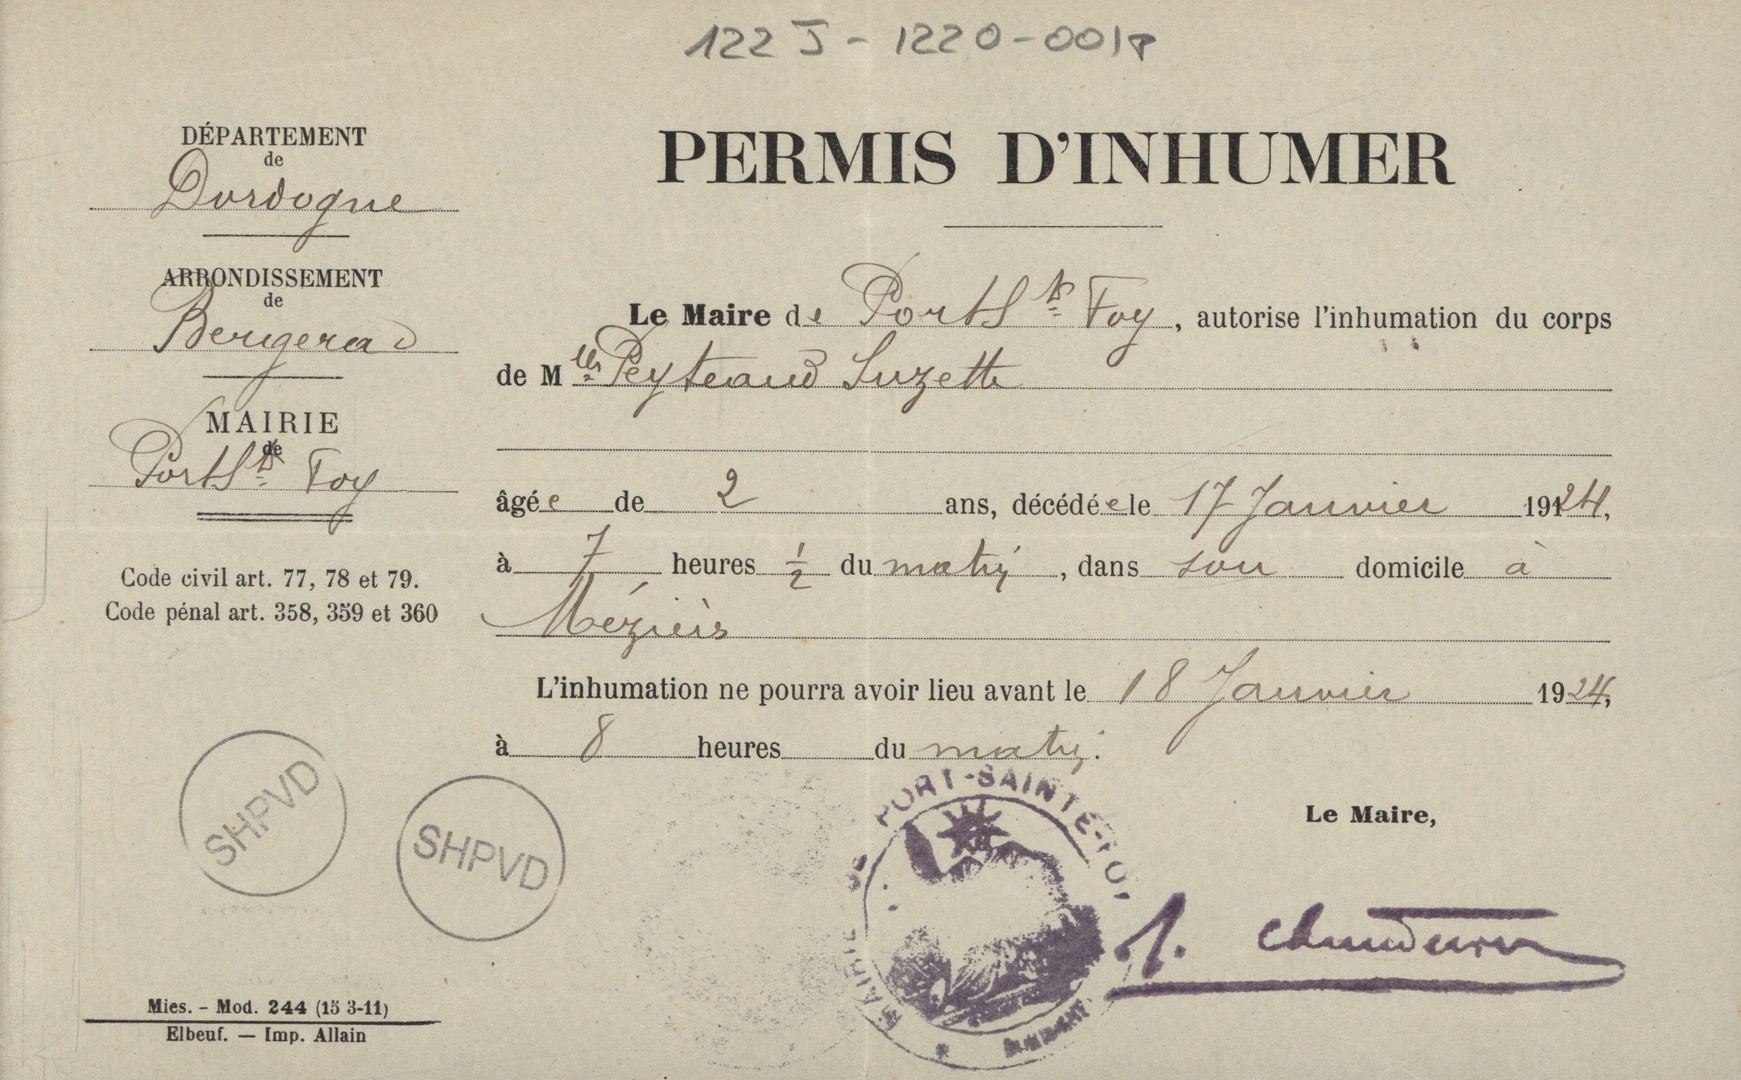 122 J - 1220-0018
DÉPARTEMENT
de
Dordogne
ARRONDISSEMENT
de
Bergerac
MAIRIE
de
Port Ste Foy
Code civil art. 77, 78 et 79.
Code pénal art. 358, 359 et 360
PERMIS D'INHUMER
Le Maire de Port Ste Foy, autorise l'inhumation du corps
de Mlle Peyteaud Suzette
âgée de 2 ans, décédée le 17 Janvier 1924,
à 7 heures 1/2 du matin, dans son domicile à
L'inhumation ne pourra avoir lieu avant le 18 Janvier 1924,
à 8 heures du matin.
SHPVD
SHPVD
MAIRIE DE PORT-SAINTE-FOY
Le Maire,
Mies. - Mod. 244 (15 3-11)
Elbeuf. — Imp. Allain